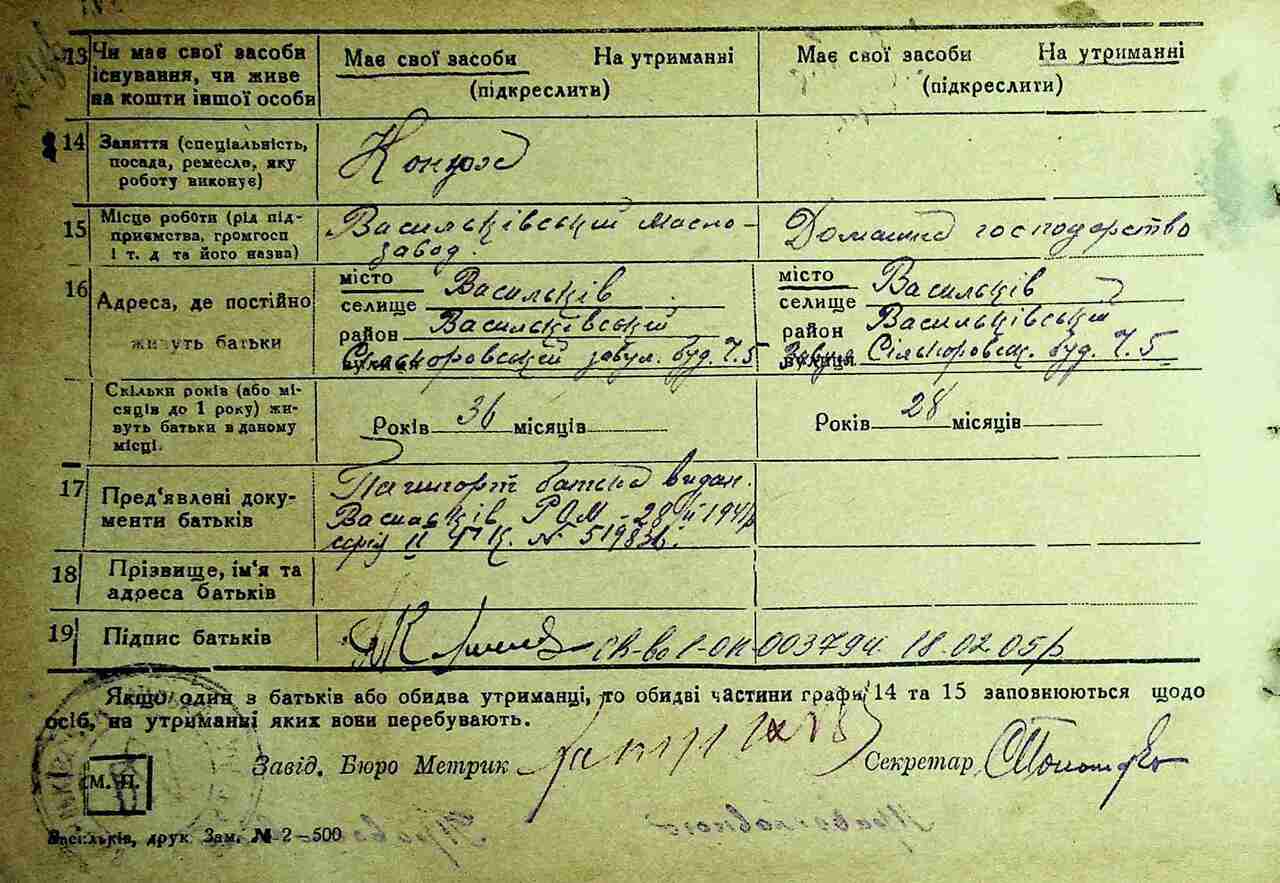 13 Чи має свої засоби існування, чи живе на кошти іншої особи
Має свої засоби На утриманні
(підкреслити)
Має свої засоби На утриманні
(підкреслити)
14 Заняття (спеціальність, посада, ремесло, яку роботу виконує)
Конюх
15 Місце роботи (рід підприємства, громгосп і т. д та його назва)
Васильківський масло-
завод.
Домашнє господарство
16 Адреса, де постійно живуть батьки
місто Васильків
селище
район Васильківський
Сількоровский завул. буд. Ч. 5
місто Васильків
селище
район Васильківський
вулиця Сількоровск. буд. Ч. 5
Скільки років (або місяців до 1 року) живуть батьки в даному місці.
Років 36 місяців
Років 28 місяців
17 Пред'явлені документи батьків
Пашпорт батька видан.
Васильків РОМ - 28
II № 519836.
18 Прізвище, ім'я та адреса батьків
19 Підпис батьків
св-во 1-ОК-003794 18.02.05р
Якщо один з батьків або обидва утриманці, то обидві частини графи 14 та 15 заповнюються щодо
осіб, на утриманні яких вони перебувають.
Завід. Бюро Метрик Секретар
М. П.
Васильків, друк Зам. № 2—500